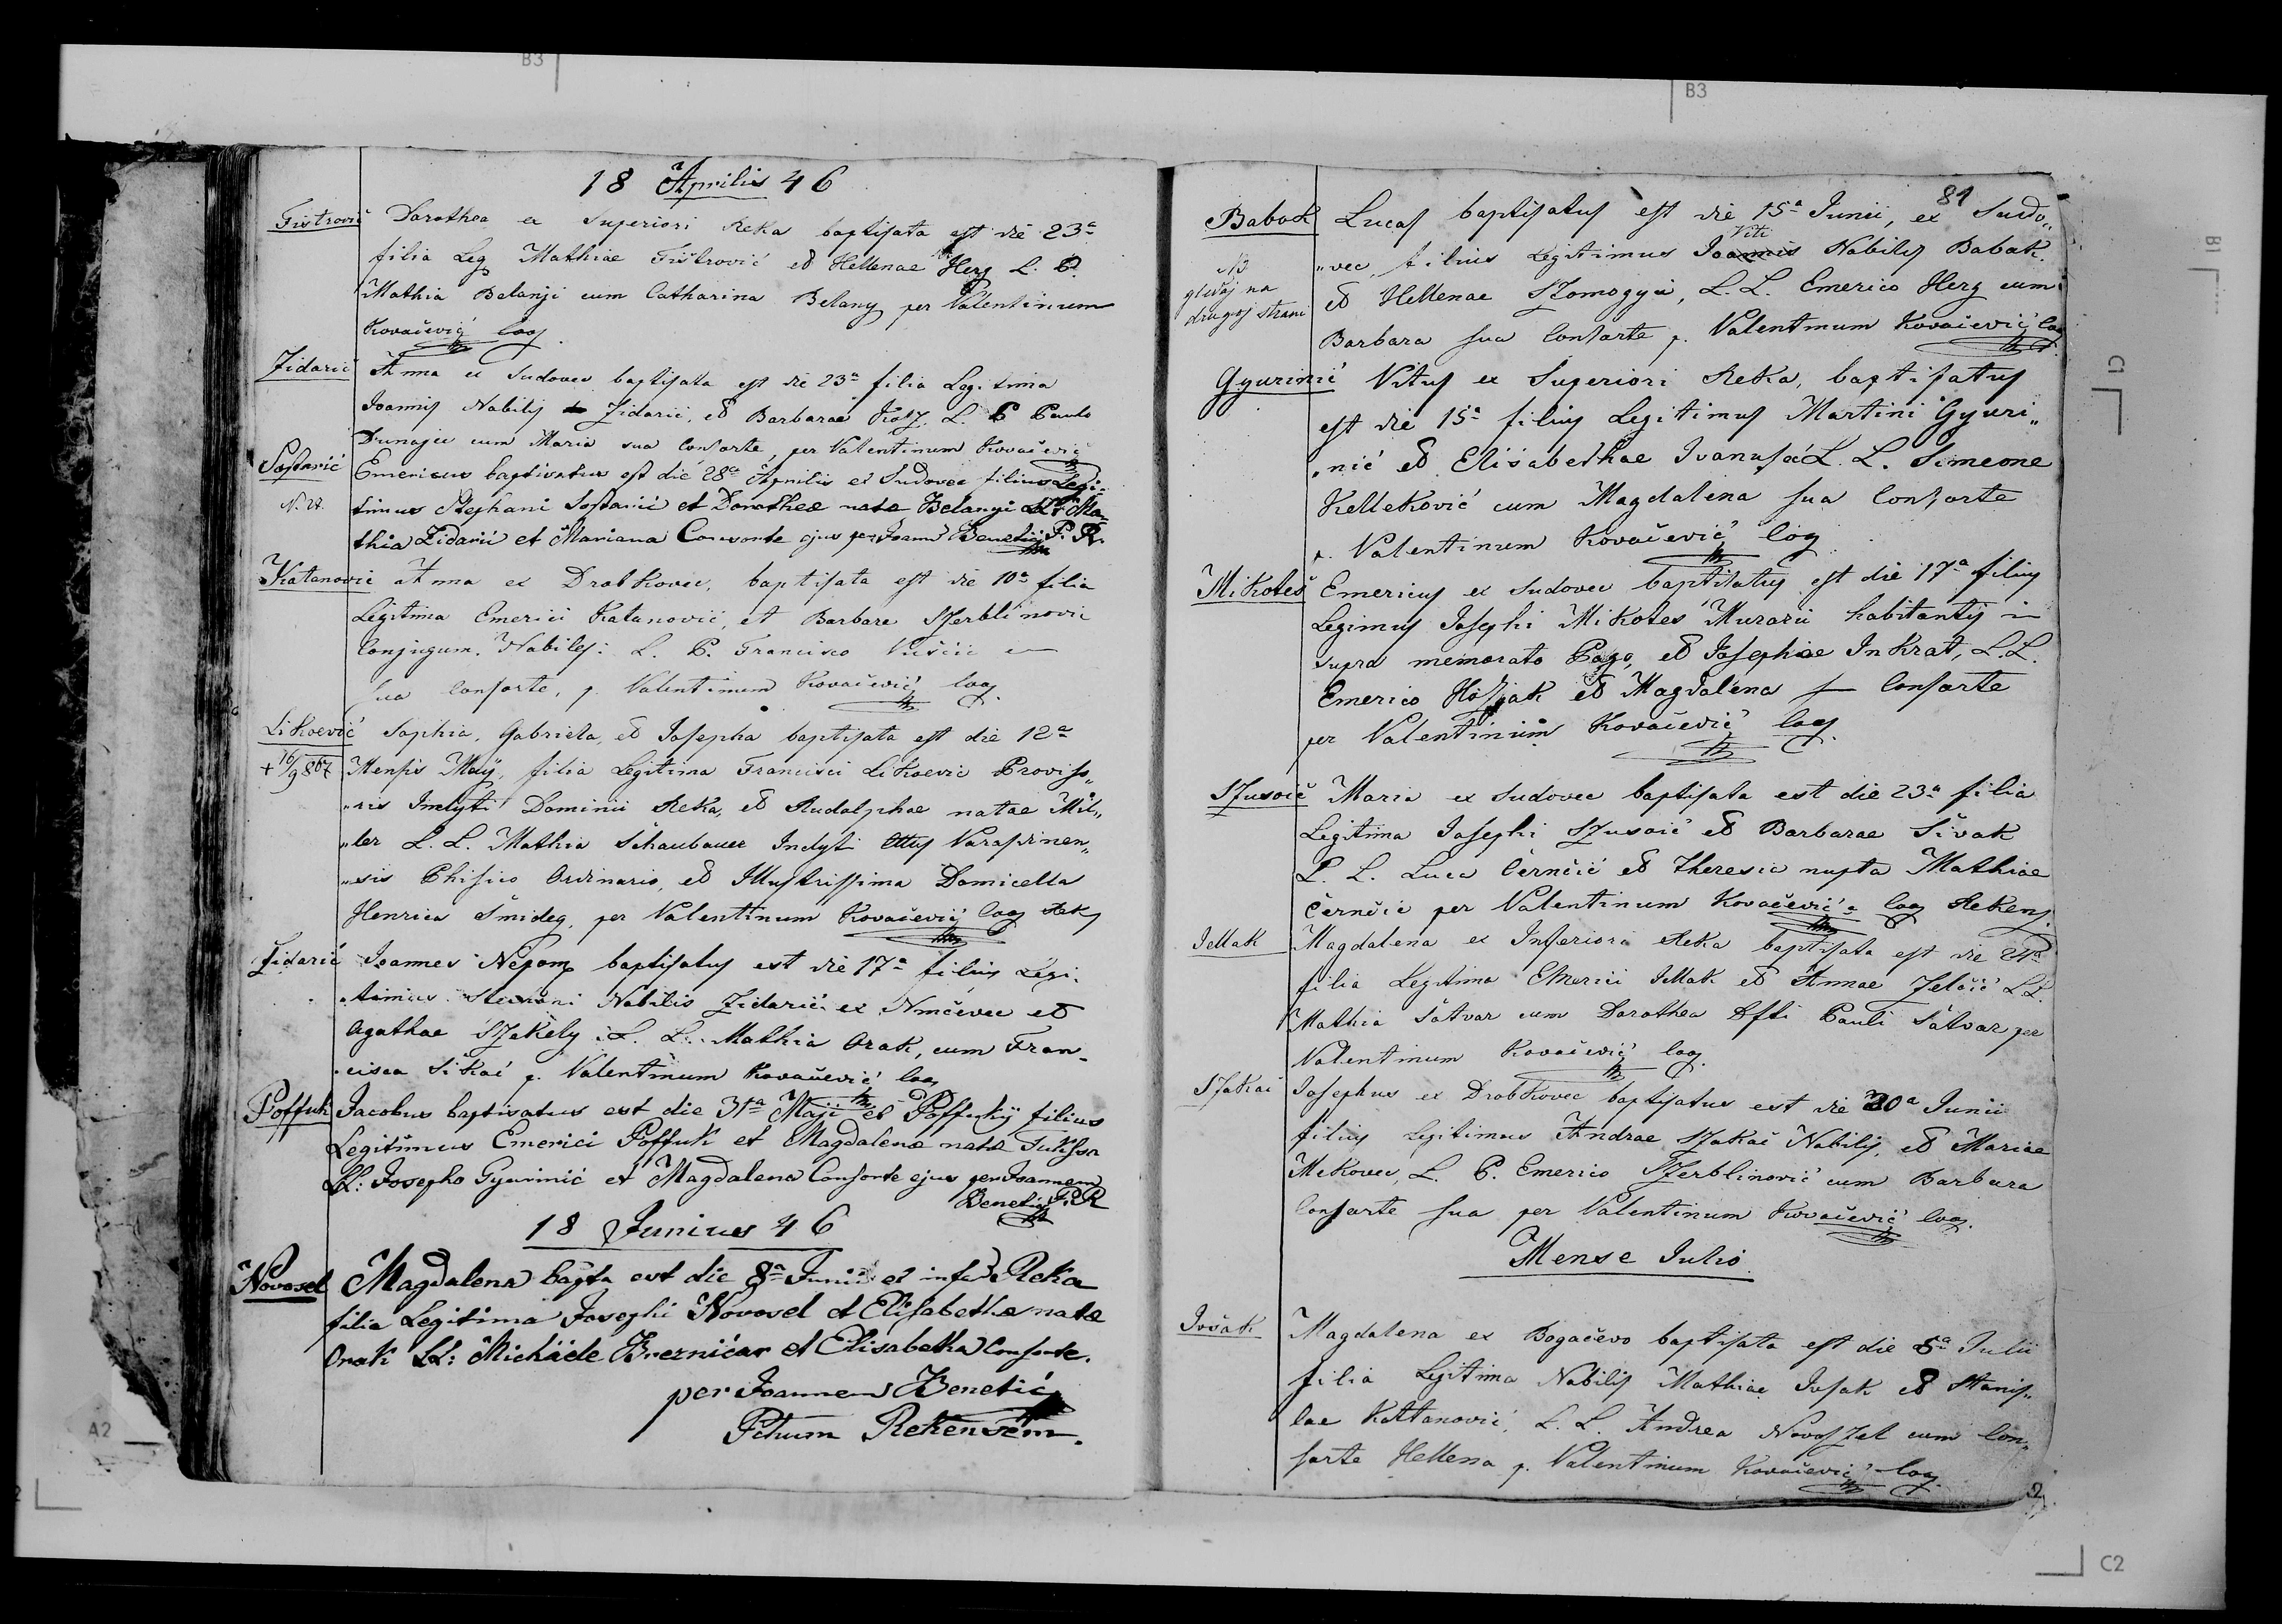 B3
B3
B1
C1
C2
A2
18 Aprilis 46
Fistrović Dorothea ex Superiori Reka baptisata est die 23a
filia Leg Mathiae Fistrović et Hellenae Herg L. P.
Mathia Belanji cum Catharina Belany per Valentinum
Kovačević Coop
Zidarić Anna ex Sudovec baptisata est die 23a filia Legitima
Joannis Nobilis Zidarić, et Barbarae L. P. Paulo
Dunaju cum Maria sua Consorte, per Valentinum Kovačević
Sostarić Emericus baptisatus est die 28a Aprilis ex Sudovec filius Legi-
timus Stephani Sostarić et Dorotheae natae Belangi LL: Ma-
thia Zidarić et Mariana Consorte ejus per Joann Benetić P. R.
Katanović Anna ex Drobkovec, baptisata est die 10a filia
Legitima Emerici Katanović, et Barbare Szerblinović
Conjugum. Nobiles: L. P. Francisco
sua Consorte, p. Valentinum Kovačević Coop.
Likoević Sophia, Gabriela, et Josepha baptisata est die 12a
+ 16/9 867 Mensis Maij, filia Legitima Francisci Likoević Proviso„
„ris Inclyti Dominii Reka, et Rudolphae natae Mil„
„ler L. L. Mathia Schaubauer Inclyti Cottus Varasdinen„
„sis Phisico Ordinario, et Illustrissima Domicella
Henrica Šmideg, per Valentinum Kovačević Coop Rek
Zidarić Joannes Nepom baptisatus est die 17a filius Legi-
„timus Stephani Nobilis Zidarić ex Nmčevec et
Agathae Szekely: L. L. Mathia Orak, cum Fran-
cisca Sikać p. Valentinum Kovačević Coop
Poffuk Jacobus baptisatus est die 31a Maji ex Poffuky filius
Legitimus Emerici Poffuk et Magdalenae natae
LL: Josepho Gyurinić et Magdalena Consorte ejus per Joannem
Benetić P. R
18 Junius 46
Novosel Magdalena bapta est die 8a Junii ex infer Reka
filia Legitima Josephi Novosel et Elisabethae natae
Orak LL: Michaele Breznićar et Elisabetha Consorte.
per Joannem Benetić
Pchum Rekensem.
81
Babok Lucas baptisatus est die 15a Junii, ex Sudo„
Viti
„vec, filius Legitimus Joannis Nobilis Babok.
NB
gledaj na
drugoj strani
et Hellenae Szomogyii, L. L. Emerico Herg cum
Barbara sua Consorte p. Valentinum Kovačević Coop
Gyurinić Vitus ex Superiori Reka, baptisatus
est die 15a filius Legitimus Martini Gyuri„
„nić et Elisabethae Ivanusić L. L. Simeone
Kelleković cum Magdalena sua Consorte
p. Valentinum Kovačević Coop
Mikoteš Emericus ex Sudovec baptisatus est die 17a filius
Legimus Josephi Mikotes Murarii habitantis in
supra memorato Pago, et Josephae Inkrat, L. L.
Emerico et Magdalena Consorte
per Valentinum Kovačević Coop.
Szusoić Maria ex Sudovec baptisata est die 23a filia
Legitima Josephi Szusoić et Barbarae Sivak
L. L. Luca Černčić et Theresia nupta Mathiae
Černčić per Valentinum Kovačević Coop Rekens
Jellak Magdalena ex Inferiori Reka baptisata est die 24a
filia Legitima Emerici Jellak et Annae Jelačić L L.
Mathia Šatvar cum Dorothea Dfti Pauli Šatvar per
Valentinum Kovačević Coop.
Szakač Josephus ex Drobkovec baptisatus est die 30a Junii
filius Legitimus Andrae Szakač Nobilis, et Mariae
Mekovec, L. P. Emerico Szerblinović cum Barbara
Consorte sua per Valentinum Kovačević Coop.
Mense Julio
Jošak Magdalena ex Bogačevo baptisata est die 5a Julii
filia Legitima Nobilis Mathiae Jusak et Stanis„
lae Kattanović, L. L. Andrea Novoszel cum Con„
sorte Hellena p. Valentinum Kovačević Coop.